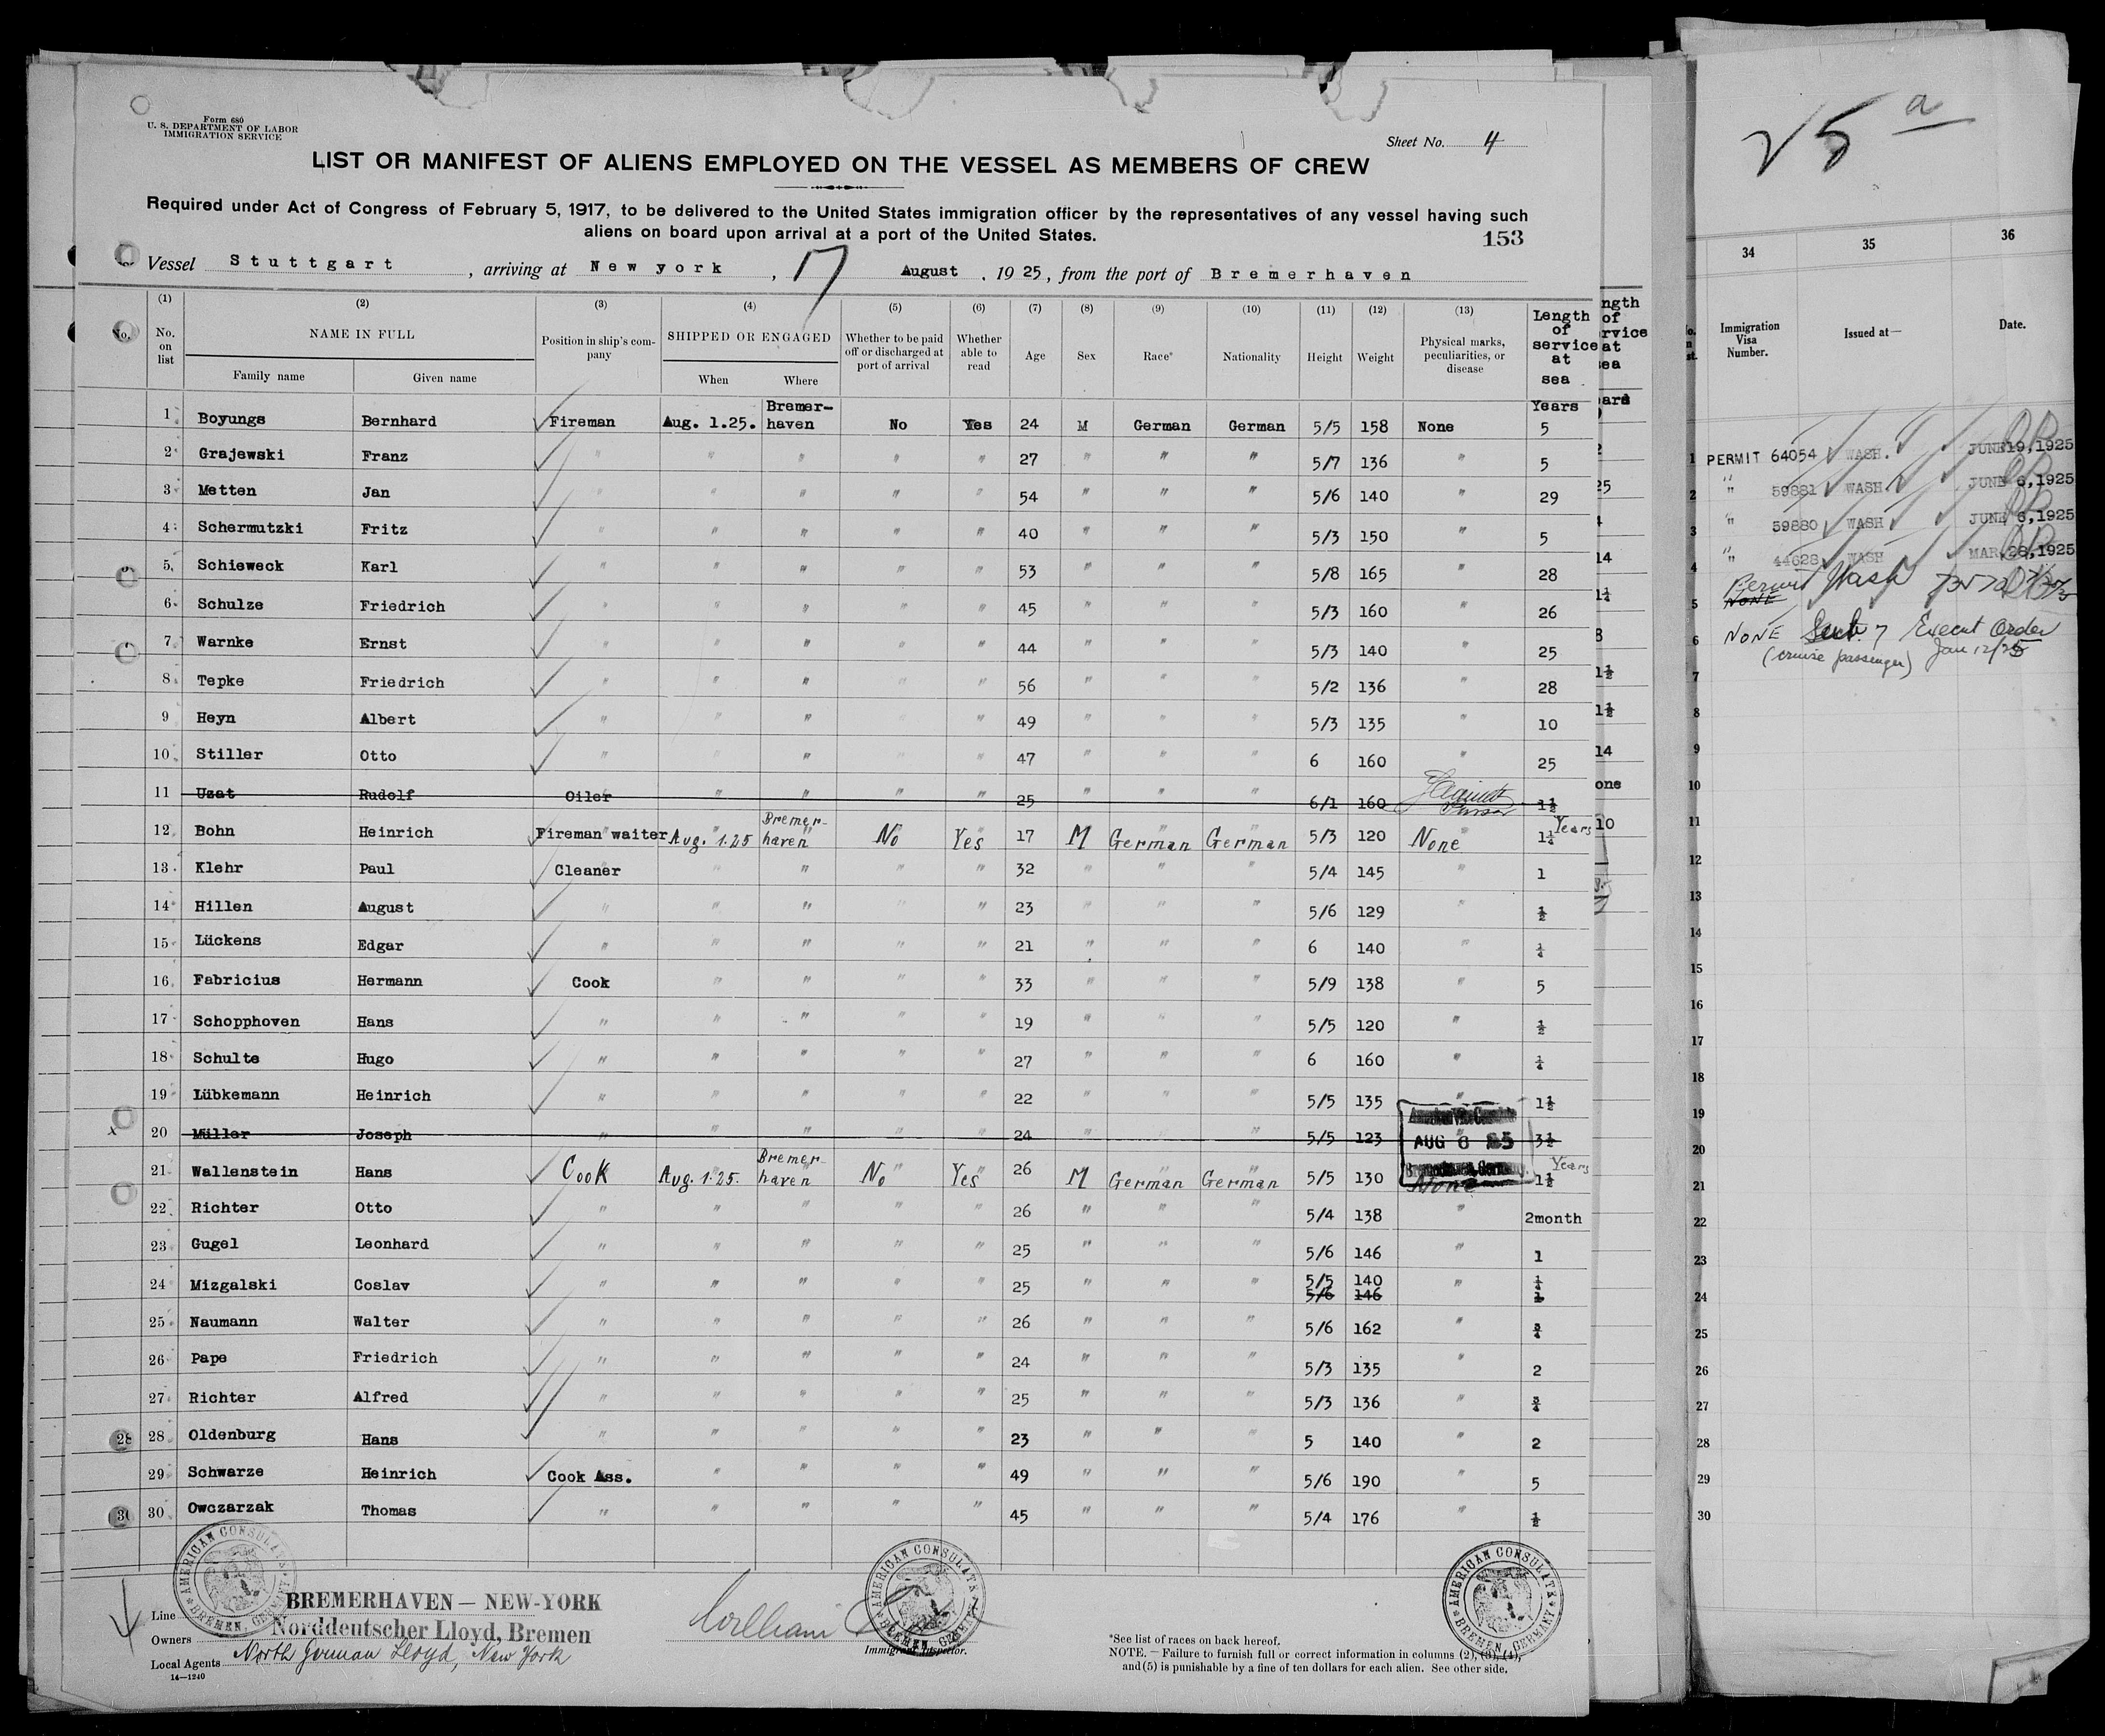 Form 680
U. S. DEPARTMENT OF LABOR
IMMIGRATION SERVICE
Sheet No. 4
LIST OR MANIFEST OF ALIENS EMPLOYED ON THE VESSEL AS MEMBERS OF CREW
Required under Act of Congress of February 5, 1917, to be delivered to the United States immigration officer by the representatives of any vessel having such
aliens on board upon arrival at a port of the United States.
153
Vessel Stuttgart, arriving at New york, 17 August, 1925, from the port of Bremerhaven
(1) (2) (3) (4) (5) (6) (7) (8) (9) (10) (11) (12) (13)
No. on list NAME IN FULL Family name Given name Position in ship's company SHIPPED OR ENGAGED When Where Whether to be paid off or discharged at port of arrival Whether able to read Age Sex Race* Nationality Height Weight Physical marks, peculiarities, or disease Length of service at sea
Years
1 Boyungs Bernhard Fireman Aug. 1.25. Bremer-haven No Yes 24 M German German 5/5 158 None 5
2 Grajewski Franz " " " " " 27 " " " 5/7 136 " 5
3 Metten Jan " " " " " 54 " " " 5/6 140 " 29
4 Schermutzki Fritz " " " " " 40 " " " 5/3 150 " 5
5 Schieweck Karl " " " " " 53 " " " 5/8 165 " 28
6 Schulze Friedrich " " " " " 45 " " " 5/3 160 " 26
7 Warnke Ernst " " " " " 44 " " " 5/3 140 " 25
8 Tepke Friedrich " " " " " 56 " " " 5/2 136 " 28
9 Heyn Albert " " " " " 49 " " " 5/3 135 " 10
10 Stiller Otto " " " " " 47 " " " 6 160 " 25
11 Uzat Rudolf Oiler " " " " 25 " " " 6/1 160 1½
12 Bohn Heinrich Fireman waiter Aug. 1.25 Bremer-haven No Yes 17 M German German 5/3 120 None 1¼ Years
13 Klehr Paul Cleaner " " " " 32 " " " 5/4 145 " 1
14 Hillen August " " " " " 23 " " " 5/6 129 " ½
15 Lückens Edgar " " " " " 21 " " " 6 140 " ¼
16 Fabricius Hermann Cook " " " " 33 " " " 5/9 138 " 5
17 Schopphoven Hans " " " " " 19 " " " 5/5 120 " ½
18 Schulte Hugo " " " " " 27 " " " 6 160 " ¼
19 Lübkemann Heinrich " " " " " 22 " " " 5/5 135 " 1½
20 Müller Joseph " " " " " 24 " " " 5/5 123 " 3½
AUG 6 25
21 Wallenstein Hans Cook Aug. 1.25. Bremer-haven No Yes 26 M German German 5/5 130 None 1½ Years
22 Richter Otto " " " " " 26 " " " 5/4 138 " 2month
23 Gugel Leonhard " " " " " 25 " " " 5/6 146 " 1
24 Mizgalski Coslav " " " " " 25 " " " 5/5 140 " ¼
5/6 146 1
25 Naumann Walter " " " " " 26 " " " 5/6 162 " ¾
26 Pape Friedrich " " " " " 24 " " " 5/3 135 " 2
27 Richter Alfred " " " " " 25 " " " 5/3 136 " ¾
28 Oldenburg Hans " " " " " 23 " " " 5 140 " 2
29 Schwarze Heinrich Cook Ass. " " " " 49 " " " 5/6 190 " 5
30 Owczarzak Thomas " " " " " 45 " " " 5/4 176 " ½
AMERICAN CONSULATE BREMEN, GERMANY
AMERICAN CONSULATE BREMEN, GERMANY
AMERICAN CONSULATE BREMEN, GERMANY
Line BREMERHAVEN — NEW-YORK
Owners Norddeutscher Lloyd, Bremen
Local Agents North German Lloyd, New York
14—1240
William
Immigrant Inspector.
*See list of races on back hereof.
NOTE. — Failure to furnish full or correct information in columns (2), (3), (4),
and (5) is punishable by a fine of ten dollars for each alien. See other side.
25 a
34 35 36
Immigration Visa Number. Issued at— Date.
1 PERMIT 64054 WASH. JUNE 19, 1925
2 " 59881 WASH JUNE 6, 1925
3 " 59880 WASH JUNE 6, 1925
4 " 44628 WASH MAR. 28, 1925
5 Permit Wash
NONE
6 NONE Sect. 7 Execut Order
(cruise passenger) Jan 12/25
7
8
9
10
11
12
13
14
15
16
17
18
19
20
21
22
23
24
25
26
27
28
29
30